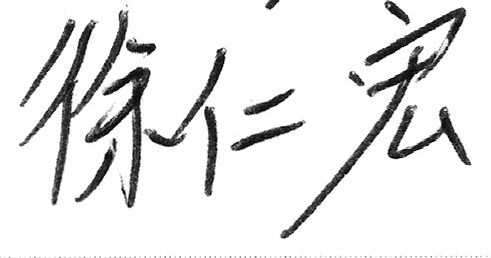 徐仁宏